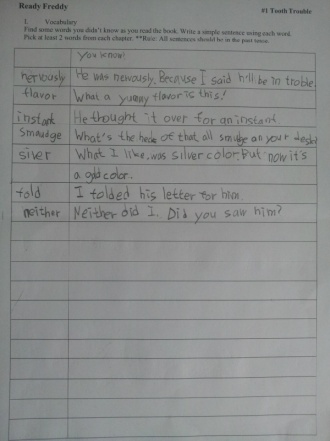 Ready Freddy
#1 Tooth Trouble
1. Vocabulary
Find some words you didn't know as you read the book. Write a simple sentence using each word.
Pick at least 2 words from each chapter. **Rule: All sentences should be in the past tense.
you know!
nervously He was nervously, Because I said he'll be in troble.
flavor What a yummy flavor is this!
instant He thought it over for an instant.
Smaudge What's the of that all smudge on your desk?
siver What I like, was silver color. But now it's
a gold color.
fold I folded his letter for him.
neither Neither did I. Did you saw him?